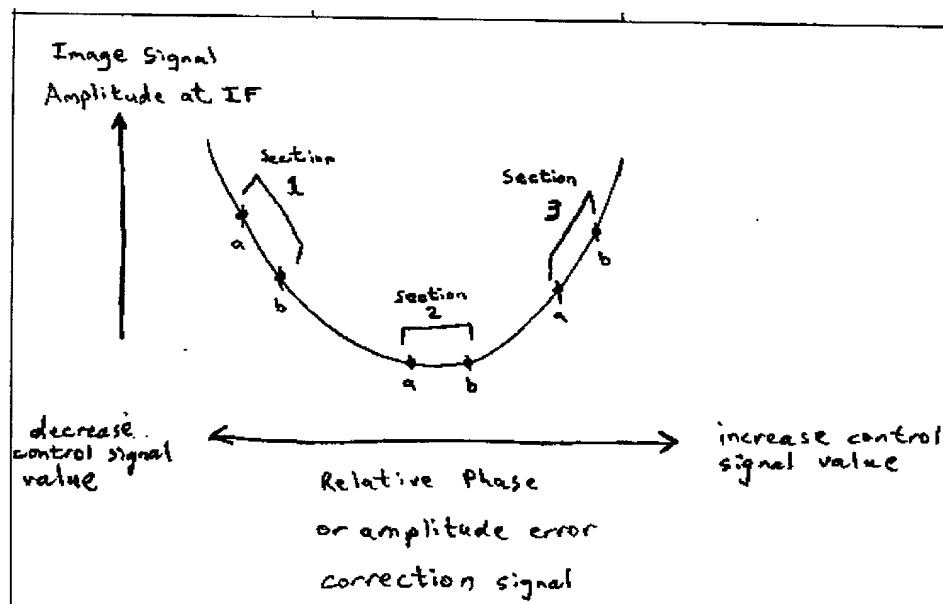 Image Signal
Amplitude at IF
Section
1
a
b
Section
2
a
b
Section
3
b
a
decrease
control signal
value
increase control
signal value
Relative Phase
or amplitude error
correction signal